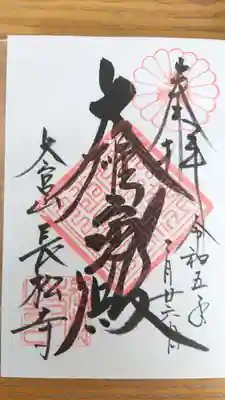 奉拝
令和五年
一月廿六日
大雄宝殿
大宮山長松寺